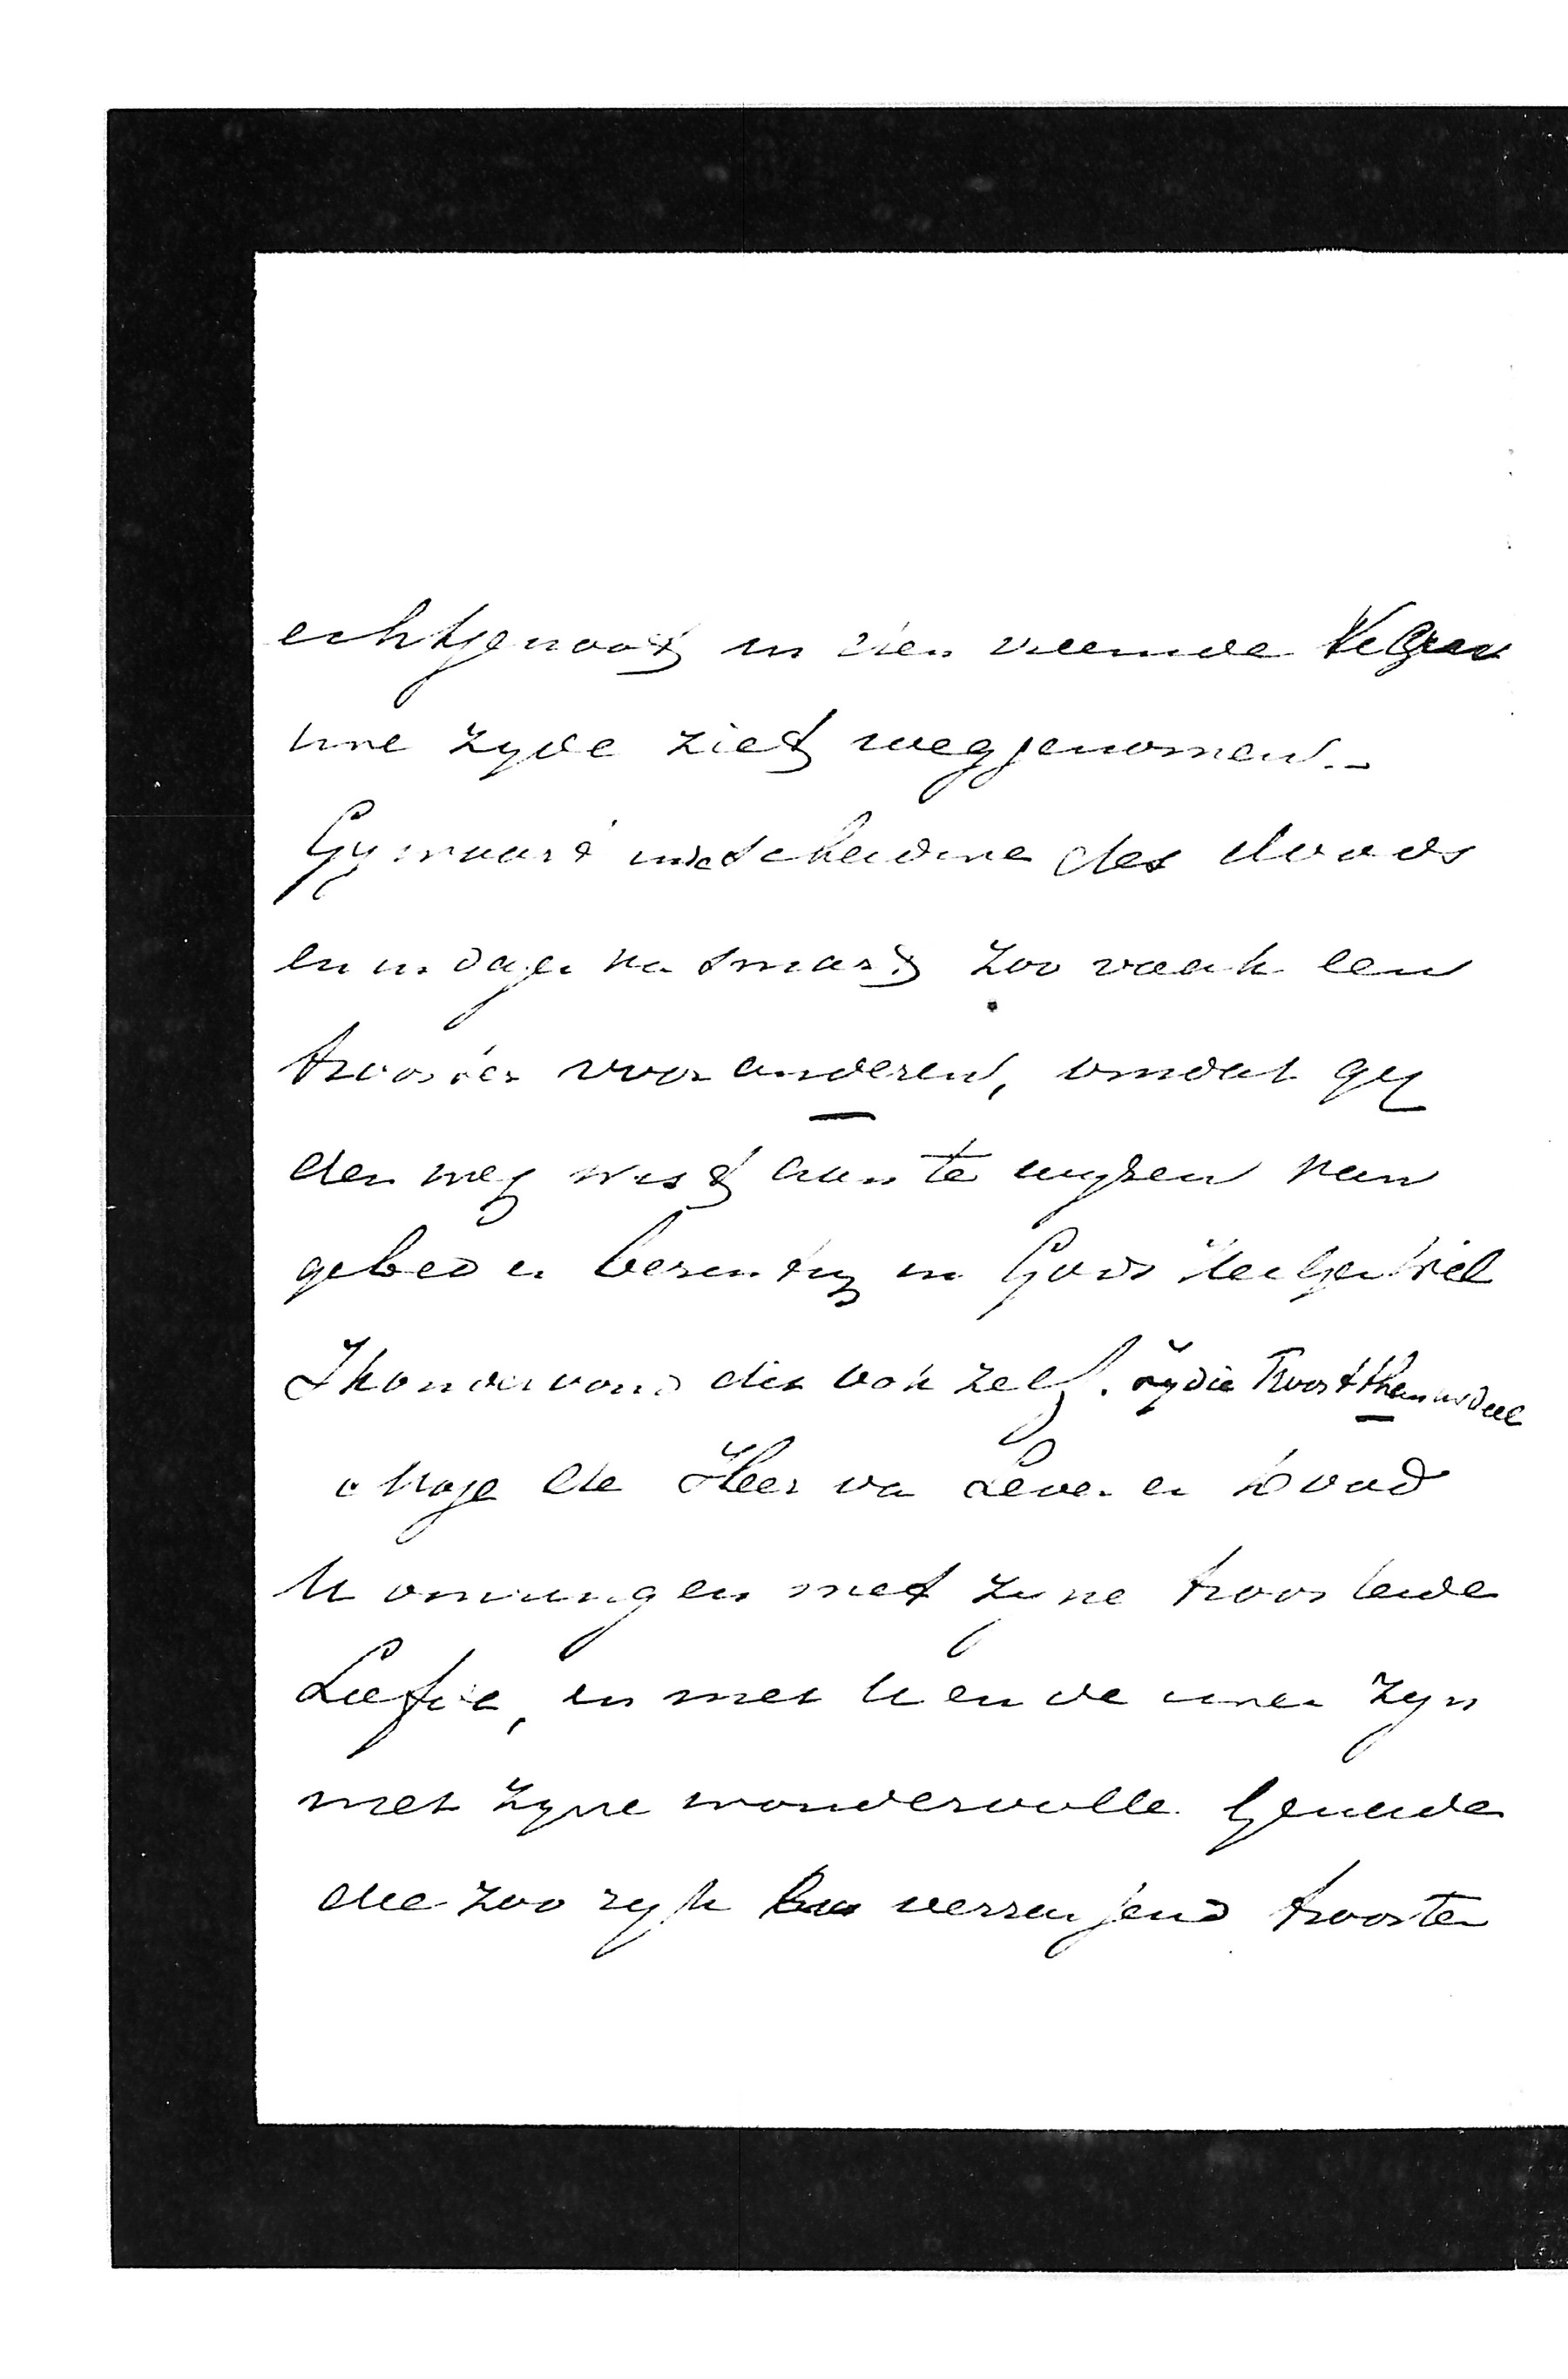 echtgenoot in den vreemde
uwe zyde ziet weggenomen.-
Gy waart in de scheiding des doods
en in dagen van smart zoo vaak een
trooster voor anderen, omdat gy
den weg wist aan te wyzen van
gebed en berusting in Gods Heilgen Wil
Ik ondervond dit ook zelf. Zy die Troost thans uw deel
Moge de Heer van Leven en Dood
U omringen met zyne troostende
Liefde, en met U en de uwen zyn
met zyne wondervolle Genade
die zoo ryk en verrassend troosten